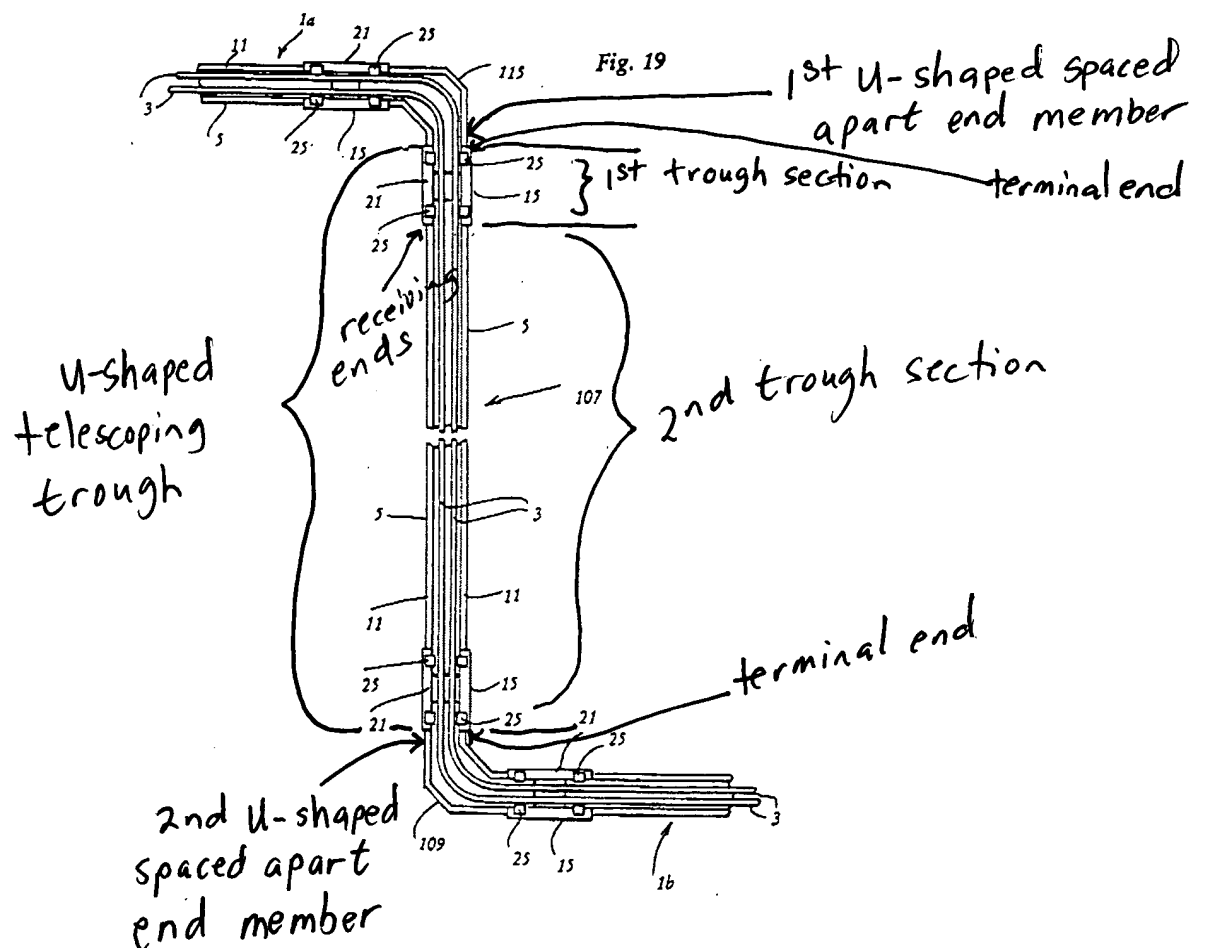 1a
11
21
25
Fig. 19
115
1st U-shaped spaced
apart end member
3
5
25
15
25
1st trough section
terminal end
21
15
25
receiving
ends
5
U-shaped
telescoping
trough
107
2nd trough section
5
3
11
11
terminal end
25
15
21
25
21
25
2nd U-shaped
spaced apart
end member
109
25
15
3
1b